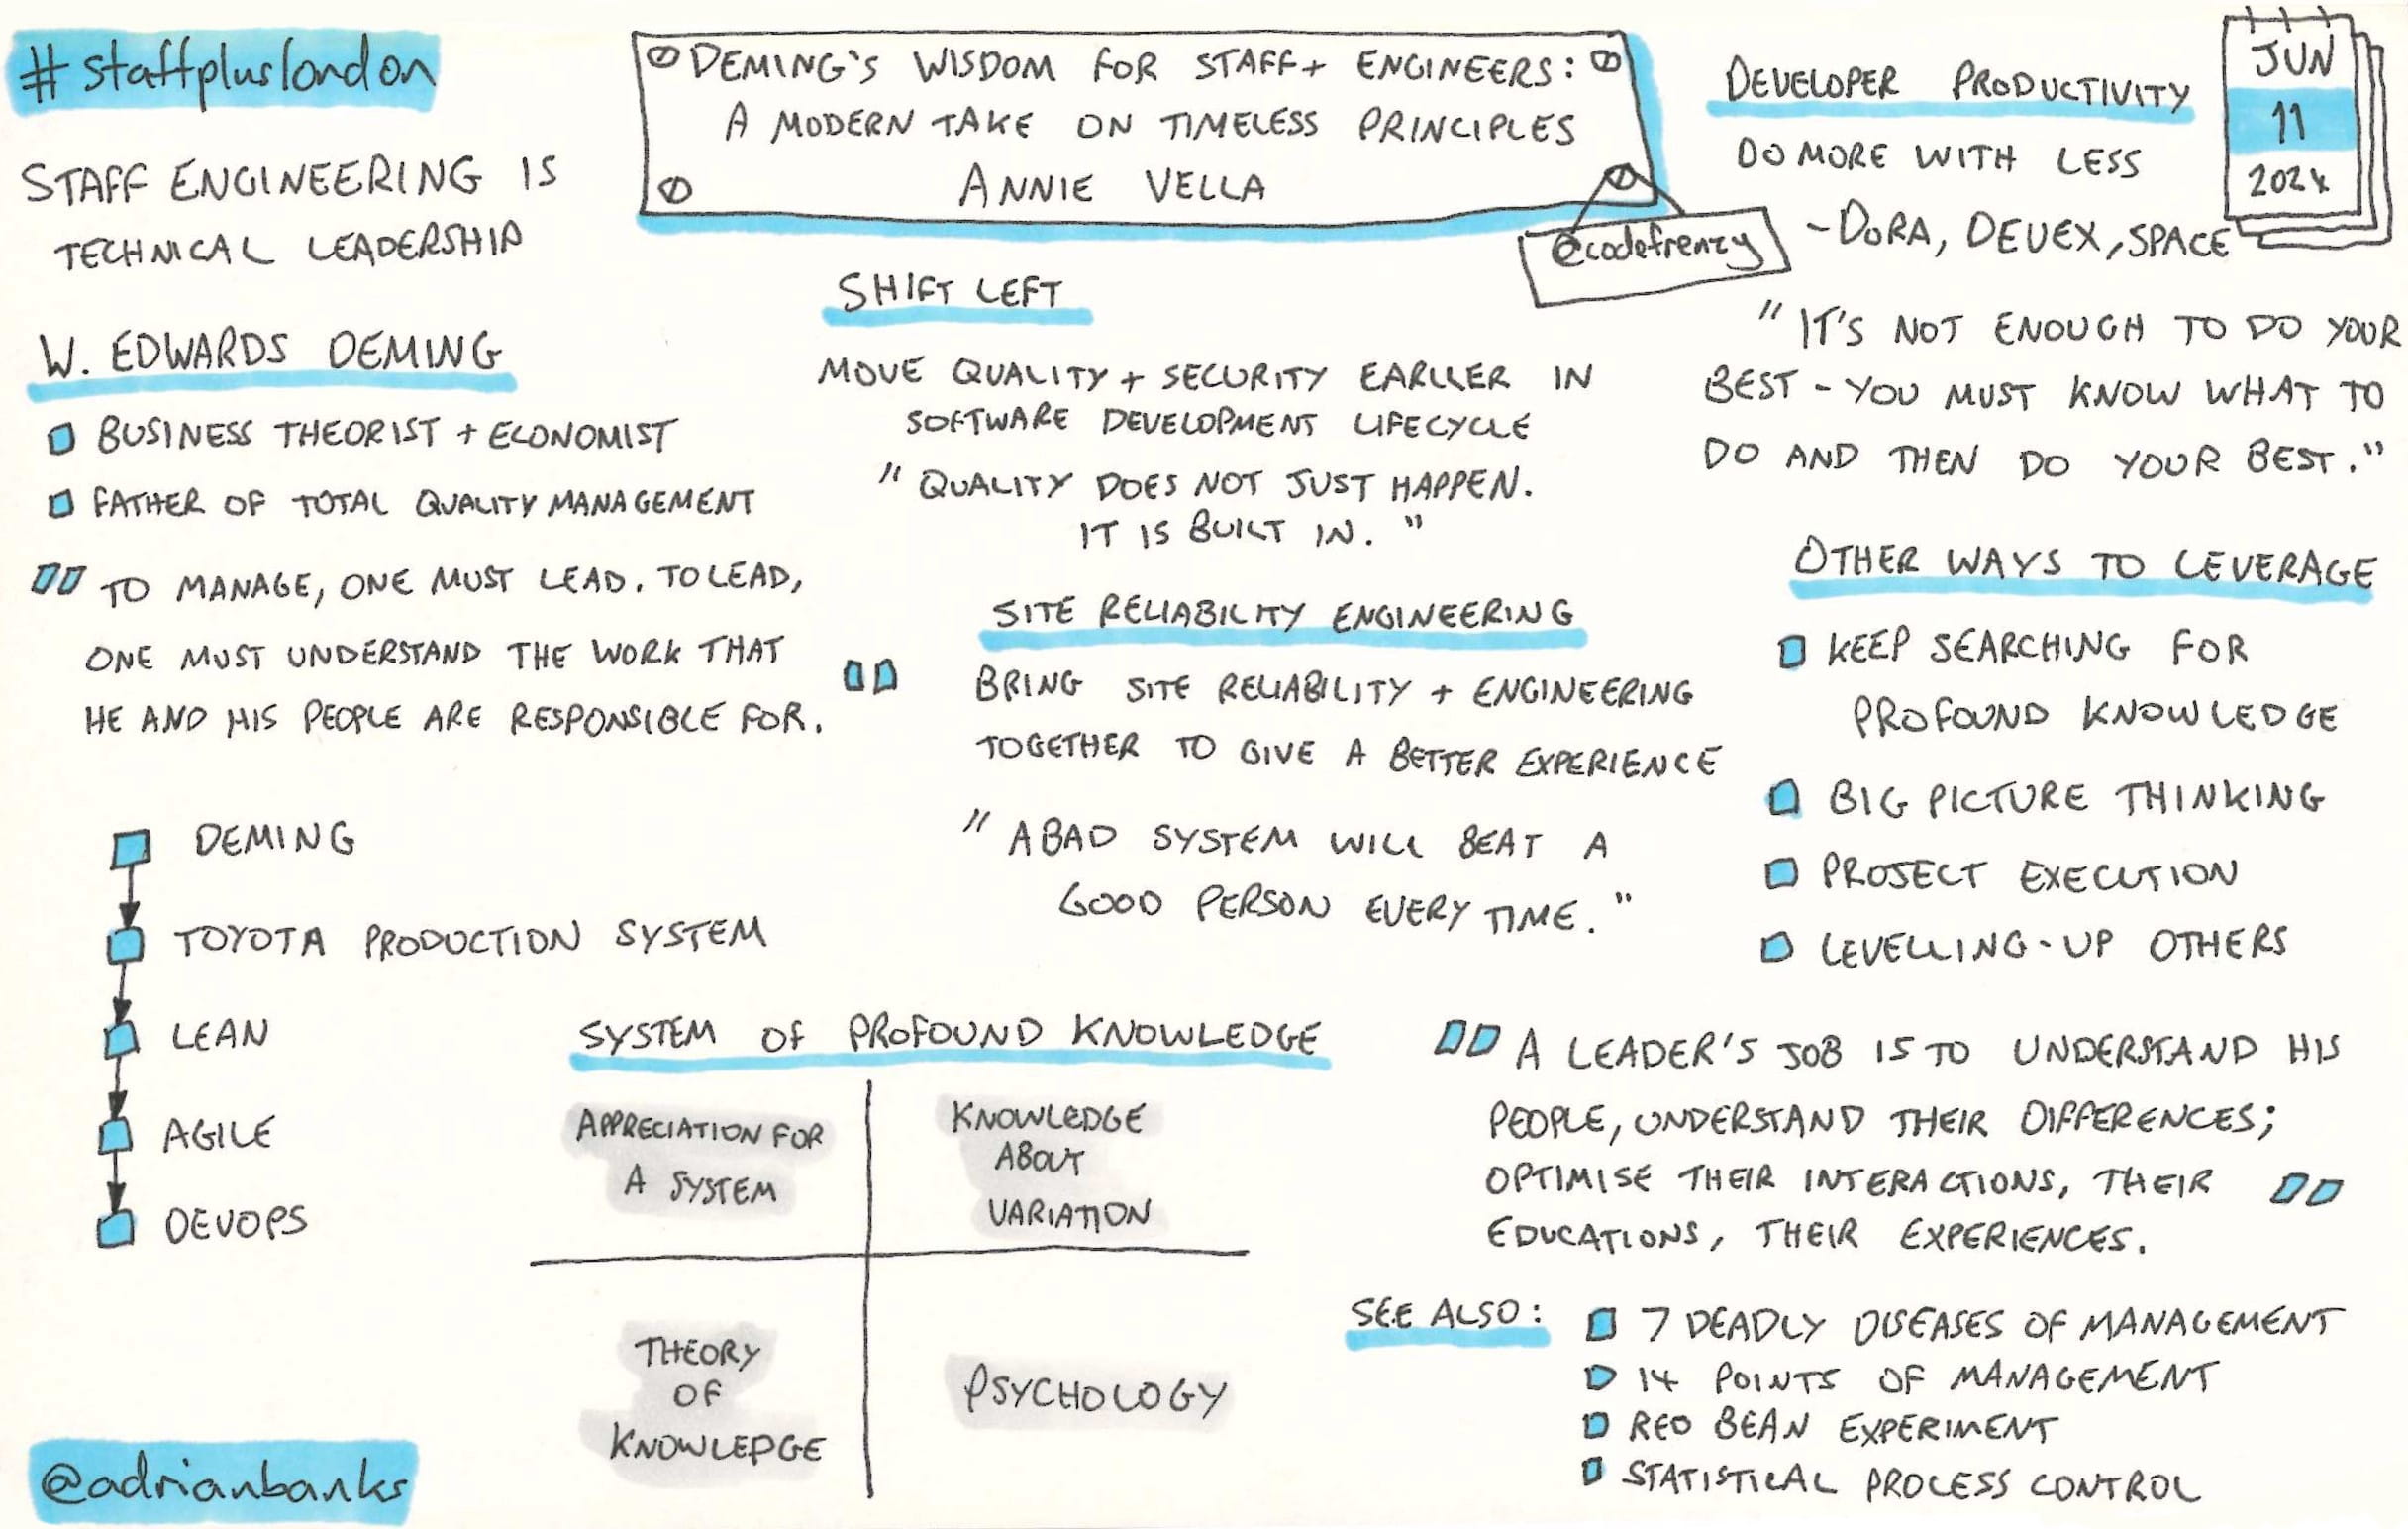 #staffpluslondon
STAFF ENGINEERING IS
TECHNICAL LEADERSHIP
W. EDWARDS DEMING
BUSINESS THEORIST + ECONOMIST
FATHER OF TOTAL QUALITY MANAGEMENT
" TO MANAGE, ONE MUST LEAD. TO LEAD,
ONE MUST UNDERSTAND THE WORK THAT
HE AND HIS PEOPLE ARE RESPONSIBLE FOR. "
DEMING
TOYOTA PRODUCTION SYSTEM
LEAN
AGILE
DEVOPS
@adrianbanks
DEMING'S WISDOM FOR STAFF+ ENGINEERS:
A MODERN TAKE ON TIMELESS PRINCIPLES
ANNIE VELLA
@codefrenzy
SHIFT LEFT
MOVE QUALITY + SECURITY EARLIER IN
SOFTWARE DEVELOPMENT LIFECYCLE
" QUALITY DOES NOT JUST HAPPEN.
IT IS BUILT IN. "
SITE RELIABILITY ENGINEERING
BRING SITE RELIABILITY + ENGINEERING
TOGETHER TO GIVE A BETTER EXPERIENCE
" A BAD SYSTEM WILL BEAT A
GOOD PERSON EVERY TIME. "
SYSTEM OF PROFOUND KNOWLEDGE
APPRECIATION FOR
A SYSTEM
KNOWLEDGE
ABOUT
VARIATION
THEORY
OF
KNOWLEDGE
PSYCHOLOGY
DEVELOPER PRODUCTIVITY
DO MORE WITH LESS
- DORA, DEVEX, SPACE
JUN
11
2024
" IT'S NOT ENOUGH TO DO YOUR
BEST - YOU MUST KNOW WHAT TO
DO AND THEN DO YOUR BEST. "
OTHER WAYS TO LEVERAGE
KEEP SEARCHING FOR
PROFOUND KNOWLEDGE
BIG PICTURE THINKING
PROJECT EXECUTION
LEVELLING-UP OTHERS
" A LEADER'S JOB IS TO UNDERSTAND HIS
PEOPLE, UNDERSTAND THEIR DIFFERENCES;
OPTIMISE THEIR INTERACTIONS, THEIR
EDUCATIONS, THEIR EXPERIENCES. "
SEE ALSO:
7 DEADLY DISEASES OF MANAGEMENT
14 POINTS OF MANAGEMENT
RED BEAN EXPERIMENT
STATISTICAL PROCESS CONTROL